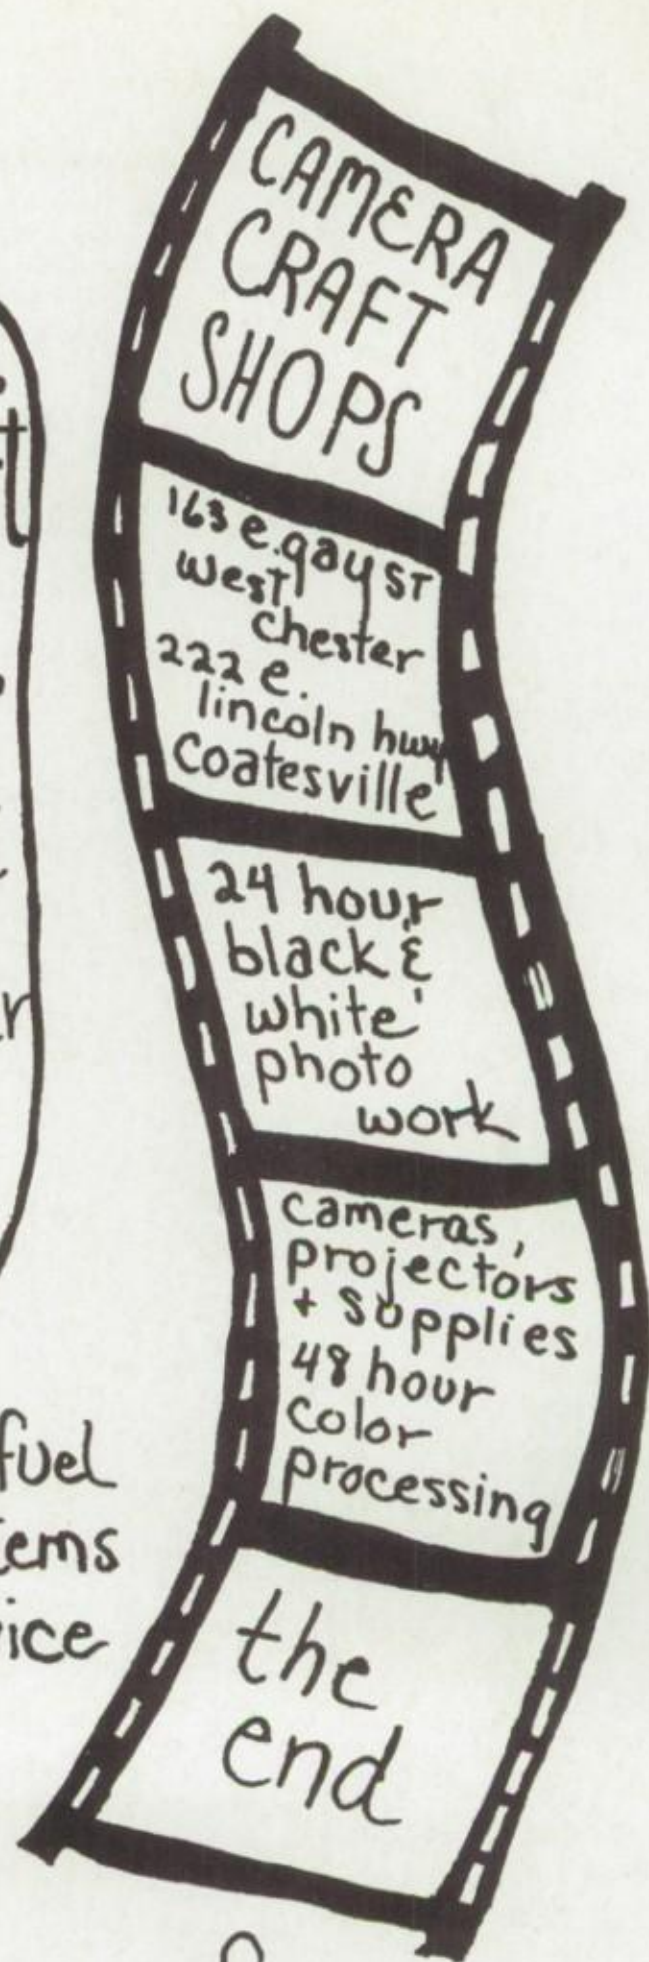 CAMERA
CRAFT
SHOPS
163 e. gay ST
west
chester
222 e.
lincoln hwy
coatesville
24 hour
black &
white
photo
work
cameras,
projectors
+ supplies
48 hour
color
processing
the
end
fuel